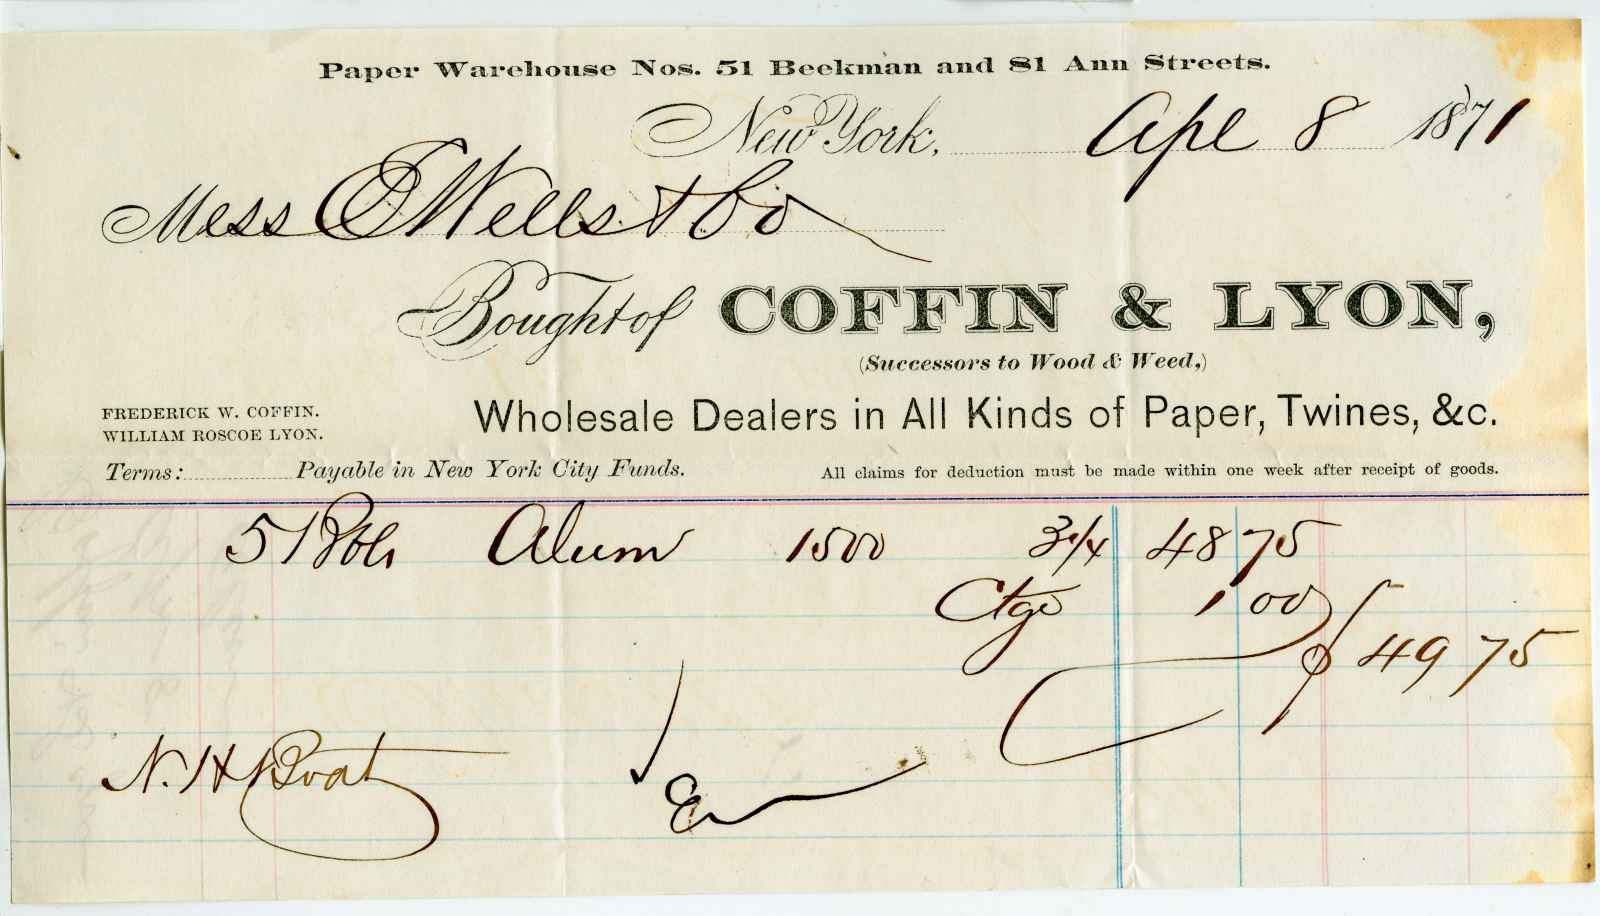 Paper Warehouse Nos. 51 Beekman and 81 Ann Streets.
New York, Apl 8 1871
Mess C Wells & Co
Bought of COFFIN & LYON,
(Successors to Wood & Weed,)
FREDERICK W. COFFIN.
WILLIAM ROSCOE LYON.
Wholesale Dealers in All Kinds of Paper, Twines, &c.
Terms: Payable in New York City Funds. All claims for deduction must be made within one week after receipt of goods.
5 Bbls Alum 1500 3 1/4 48 75
Ctge 1 00
$ 49 75
N. H Boat